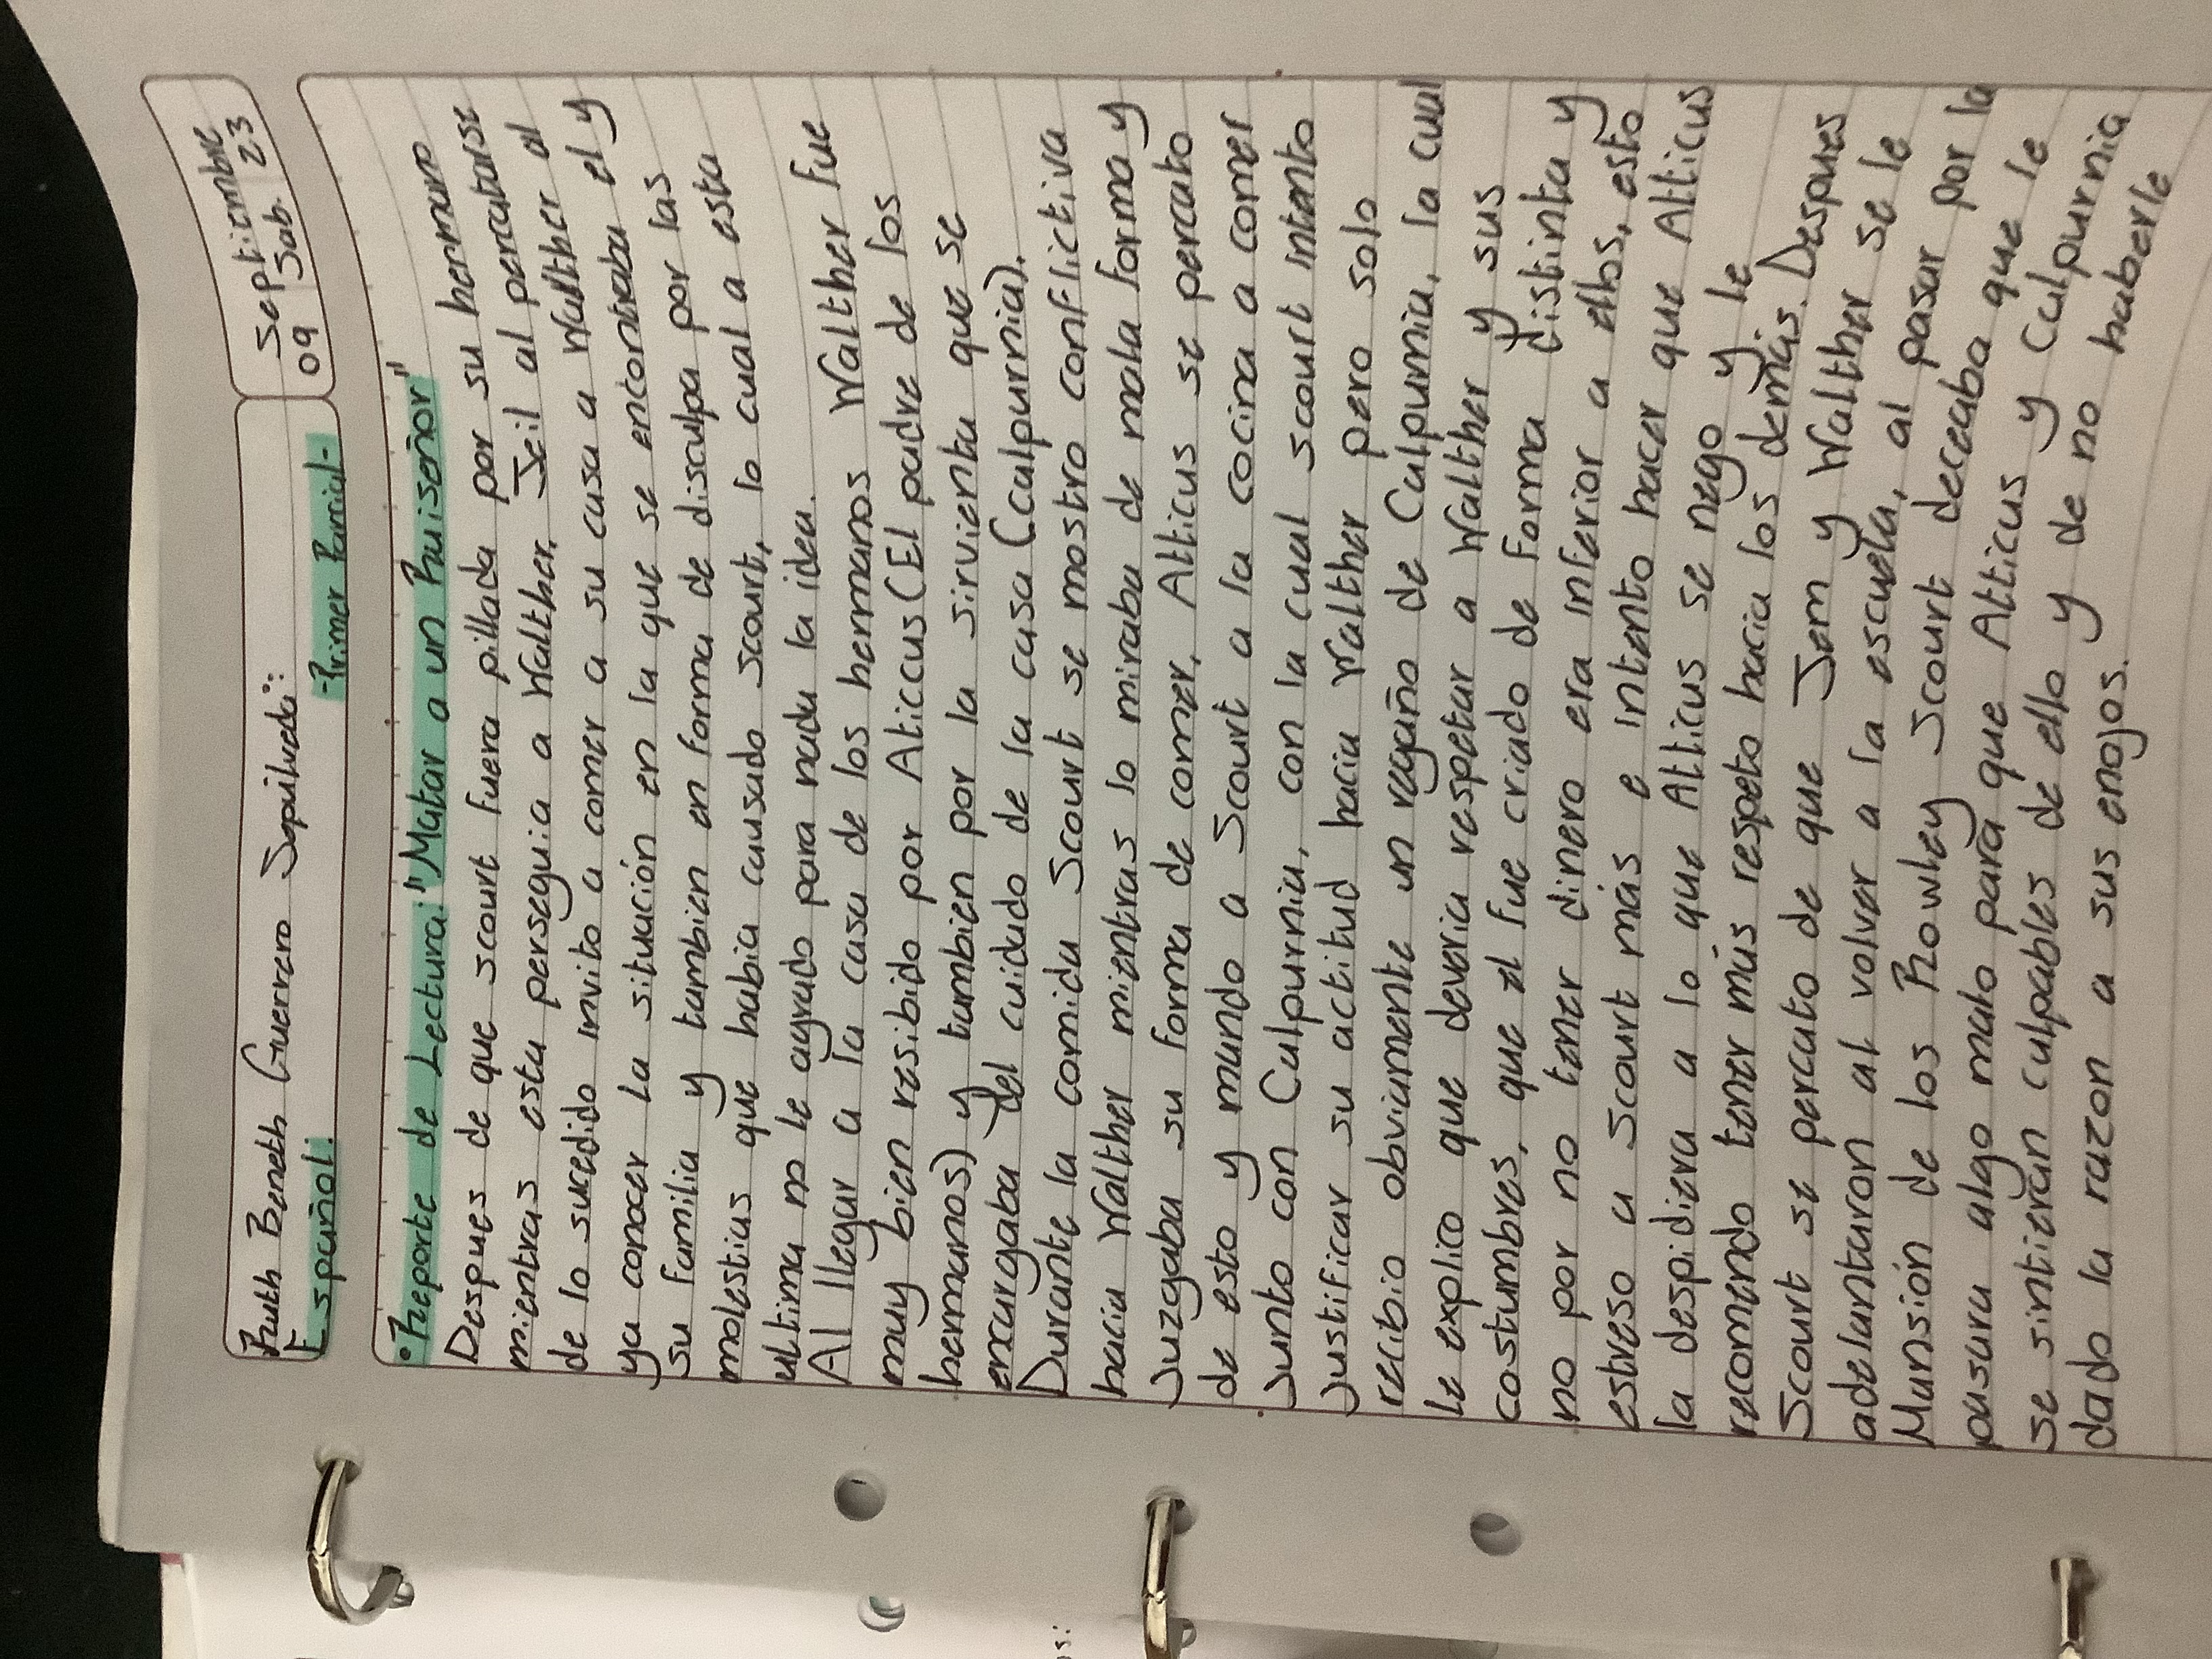 Ruth Beneth Guerrero Sepulveda:
Septiembre
09 Sab. 23
Español.
-Primer Parcial-
•Reporte de Lectura: "Matar a un Ruiseñor"
Despues de que scourt fuera pillada por su hermano
mientras esta perseguia a Walther. Jeil al percatarse
de lo sucedido invito a comer a su casa a Walther al
ya conocer la situación en la que se encontraba el y
su familia y tambien en forma de disculpa por las
molestias que habia causado scourt, lo cual a esta
ultima no le agrado para nada la idea.
Al llegar a la casa de los hermanos Walther fue
muy bien resibido por Aticcus (El padre de los
hermanos) y tambien por la sirvienta que se
encargaba del cuidado de la casa (calpurnia).
Durante la comida Scourt se mostro conflictiva
hacia Walther mientras lo miraba de mala forma y
Juzgaba su forma de comer, Atticus se percato
de esto y mando a Scourt a la cocina a comer
Junto con Calpurnia, con la cual scourt intento
Justificar su actitud hacia Walther pero solo
recibio obviamente un regaño de Calpurnia, la cual
le explico que deveria respetar a Walther y sus
costumbres, que el fue criado de forma distinta y
no por no tener dinero era inferior a ellos, esto
estreso a Scourt más e intento hacer que Atticus
la despidiera a lo que Atticus se nego y le
recomendo tener más respeto hacia los demás. Despues
Scourt se percato de que Jem y Walther se le
adelantaron al volver a la escuela, al pasar por la
Mansión de los Rowley Scourt deceaba que le
pasara algo malo para que Atticus y Culpurnia
se sintieran culpables de ello y de no haberle
dado la razon a sus enojos.